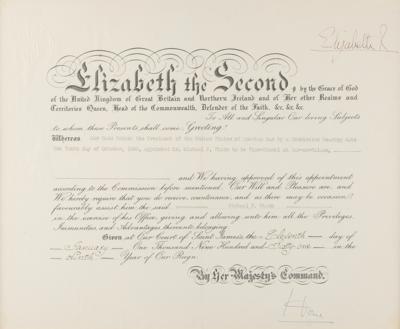 Elizabeth R
Elizabeth the Second, by the Grace of God
of the United Kingdom of Great Britain and Northern Ireland and of Her other Realms and
Territories Queen, Head of the Commonwealth, Defender of the Faith, &c. &c. &c.
To All and Singular Our loving Subjects
to whom these Presents shall come, Greeting!
Whereas Our Good Friend the President of the United States of America has by a Commission bearing date
the day of October, appointed Mr. Richard to be Vice-Consul at
and We having approved of this appointment
according to the Commission before mentioned, Our Will and Pleasure are, and
We hereby require that you do receive, countenance, and as there may be occasion,
favourably assist him the said Richard
in the exercise of his Office, giving and allowing unto him all the Privileges,
Immunities, and Advantages thereunto belonging.
Given at Our Court of Saint James's, the Eleventh day of
January One Thousand Nine Hundred and Sixty one in the
Ninth Year of Our Reign.
By Her Majesty's Command.
Home